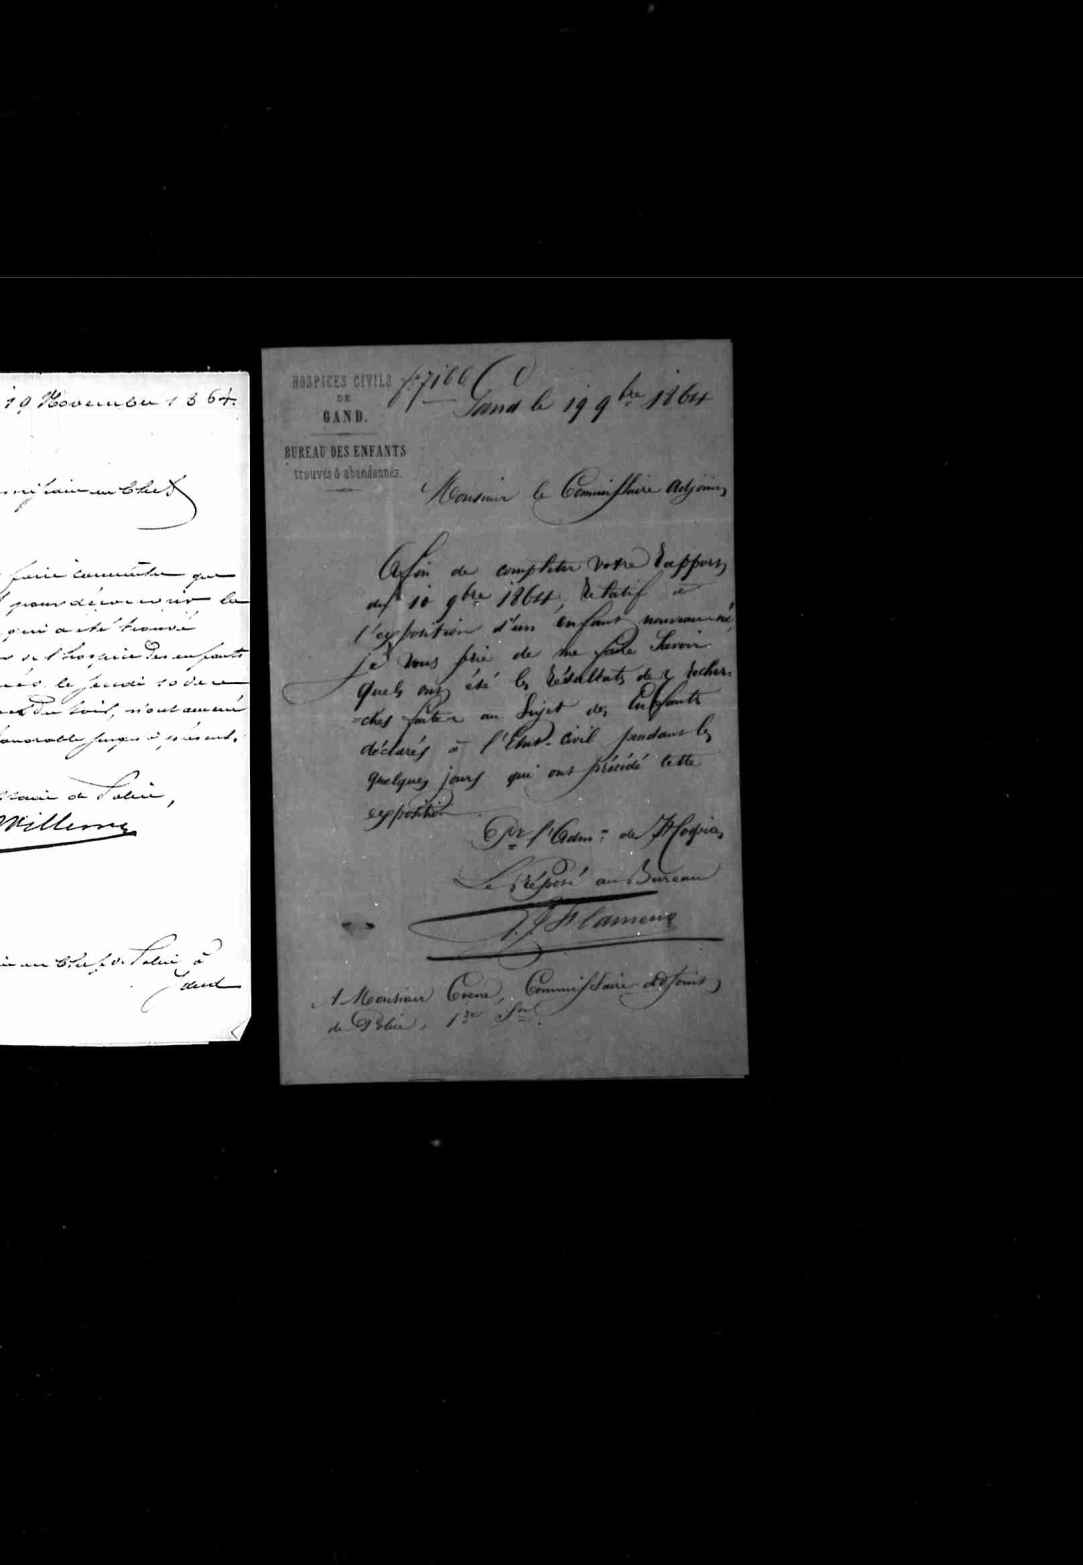 19 November 1864.
faire connaitre que
pour découvrir la
qui a été trouvé
de l'hospice des enfants
le jeudi 10 de ce
du soir, n'ont amené
favorable jusqu'à présent.
de Police,
Willems
en Chef de Police à
Gand
HOSPICES CIVILS
DE
GAND.
BUREAU DES ENFANTS
trouvés & abandonnés.
Gand le 19 9bre 1864
Monsieur le Commissaire Adjoint
Afin de completer votre Rapport
du 10 9bre 1864, Relatif à
l'exposition d'un enfant nouveau né,
je vous prie de me faire savoir
quels ont été les Résultats des recher-
=ches faites au Sujet des Enfants
déclarés à l'Etat-civil pendant les
quelques jours qui ont précédé cette
exposition
Pr l'Adm: des Hospices
Le Préposé au Bureau
A Monsieur Commissaire Adjoint
de Police, 1re Son.